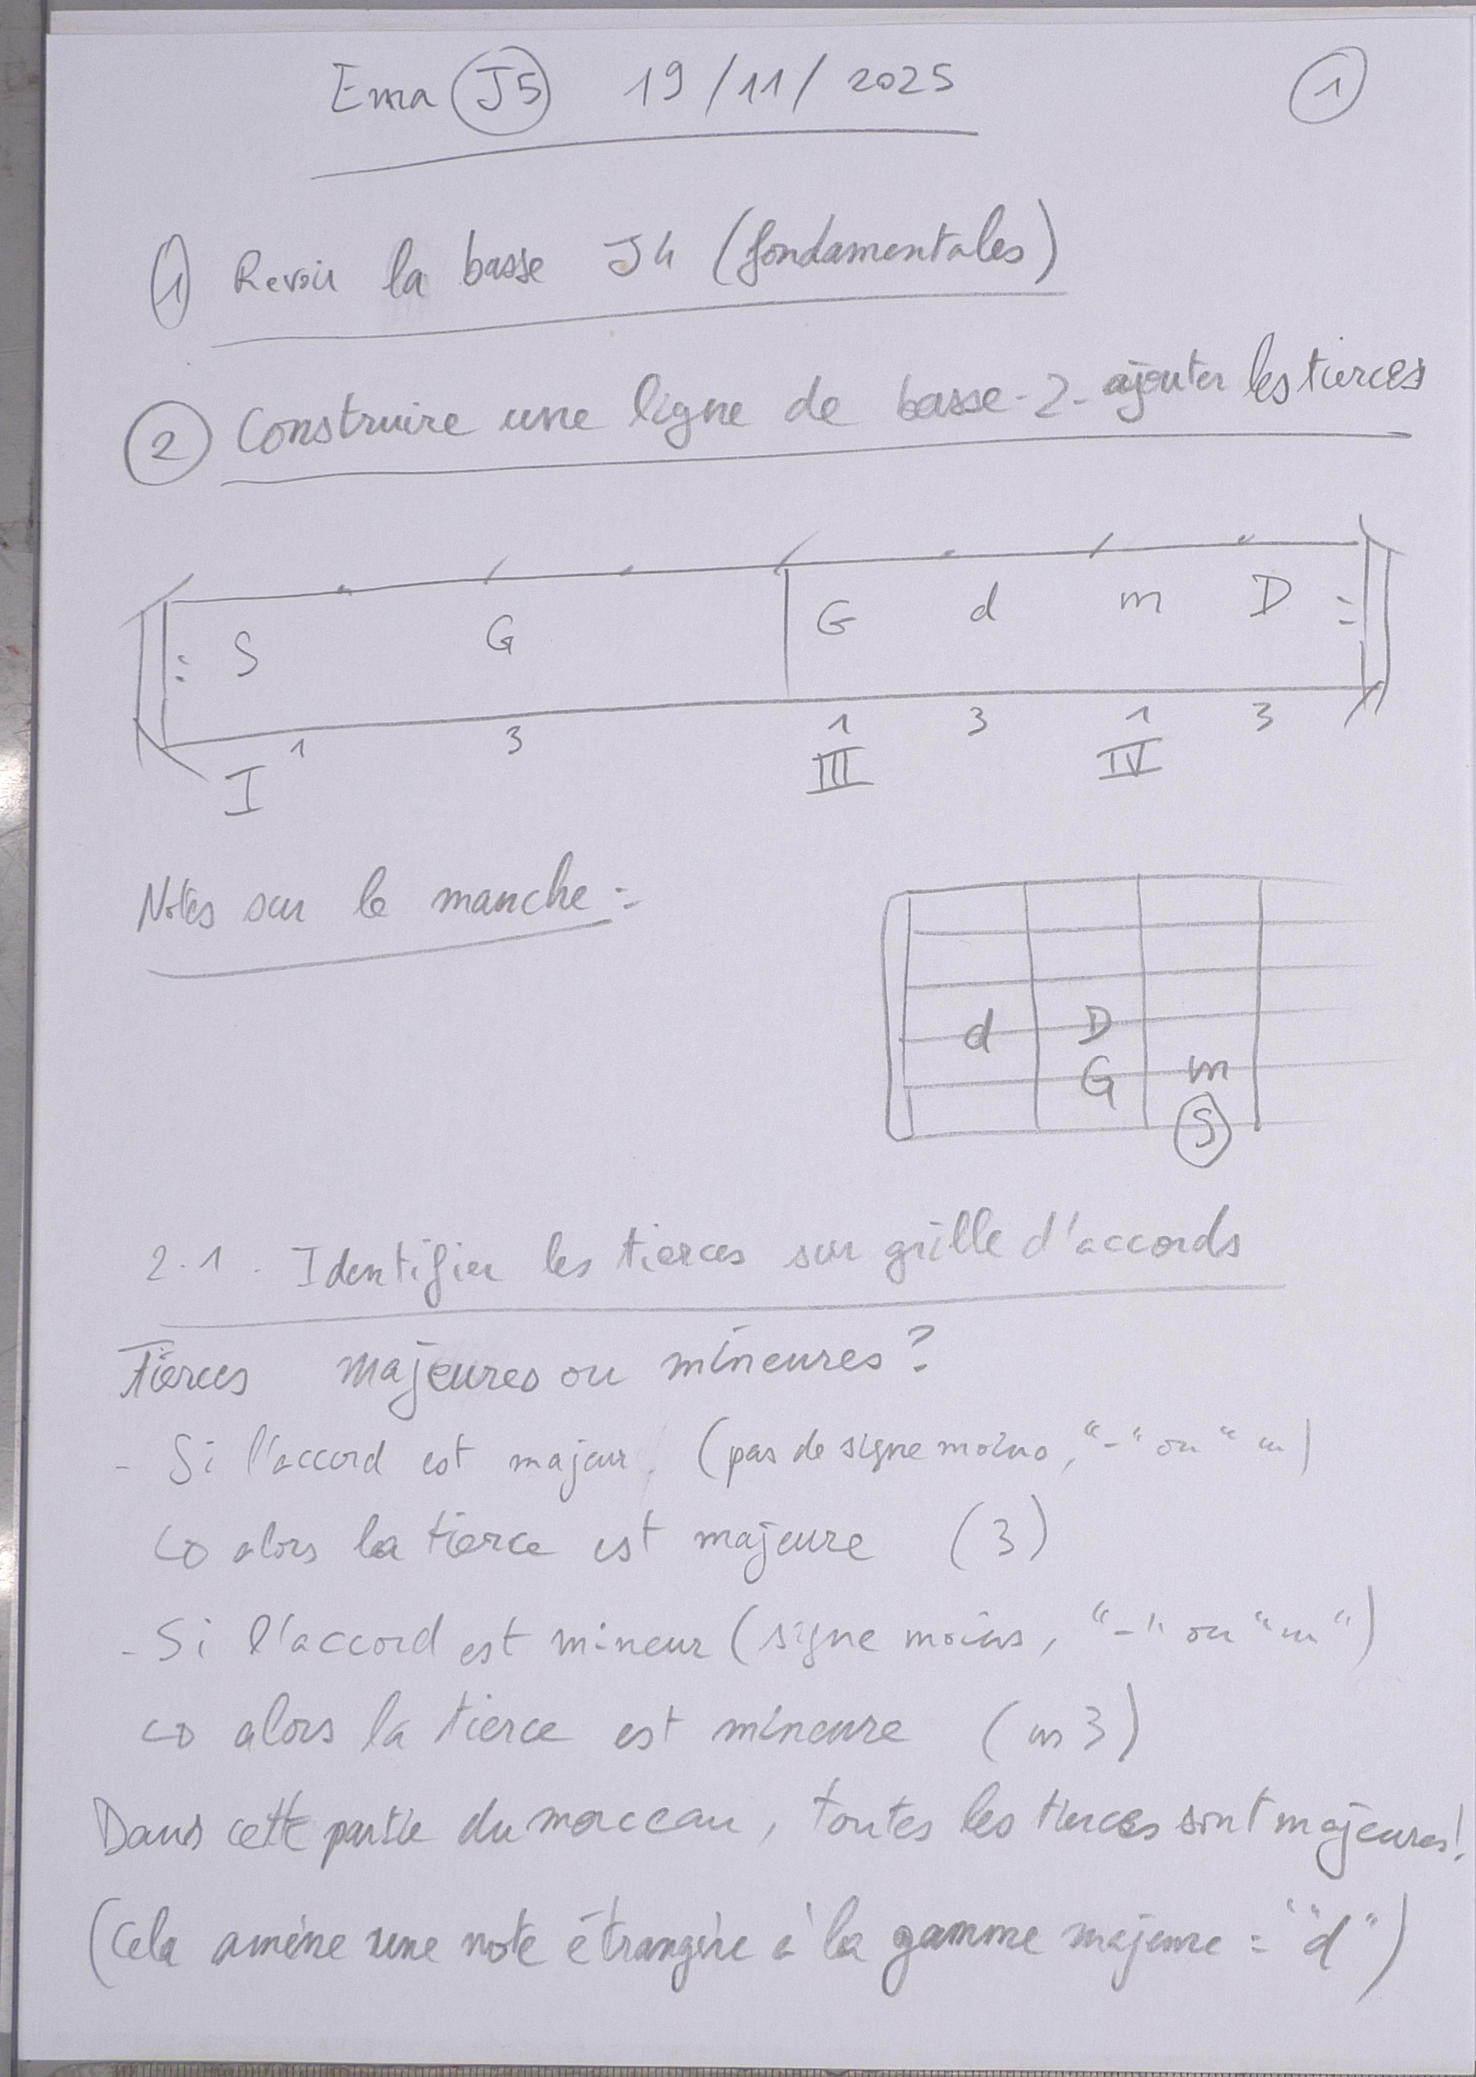 Ema J5 19/11/2025 1
1 Revoir la basse J4 (fondamentales)
2 Construire une ligne de basse-2-ajouter les tierces
: S G G d m D :
1 3 1 3 1 3
I III IV
Notes sur le manche :
d D
G m
S
2.1. Identifier les tierces sur grille d'accords
Tierces majeures ou mineures ?
- Si l'accord est majeur, (pas de signe moins, "-" ou "m)
↳ alors la tierce est majeure (3)
- Si l'accord est mineur (signe moins, "-" ou "m")
↳ alors la tierce est mineure (m3)
Dans cette partie du morceau, toutes les tierces sont majeures!
(Cela amène une note étrangère à la gamme majeure : "d")